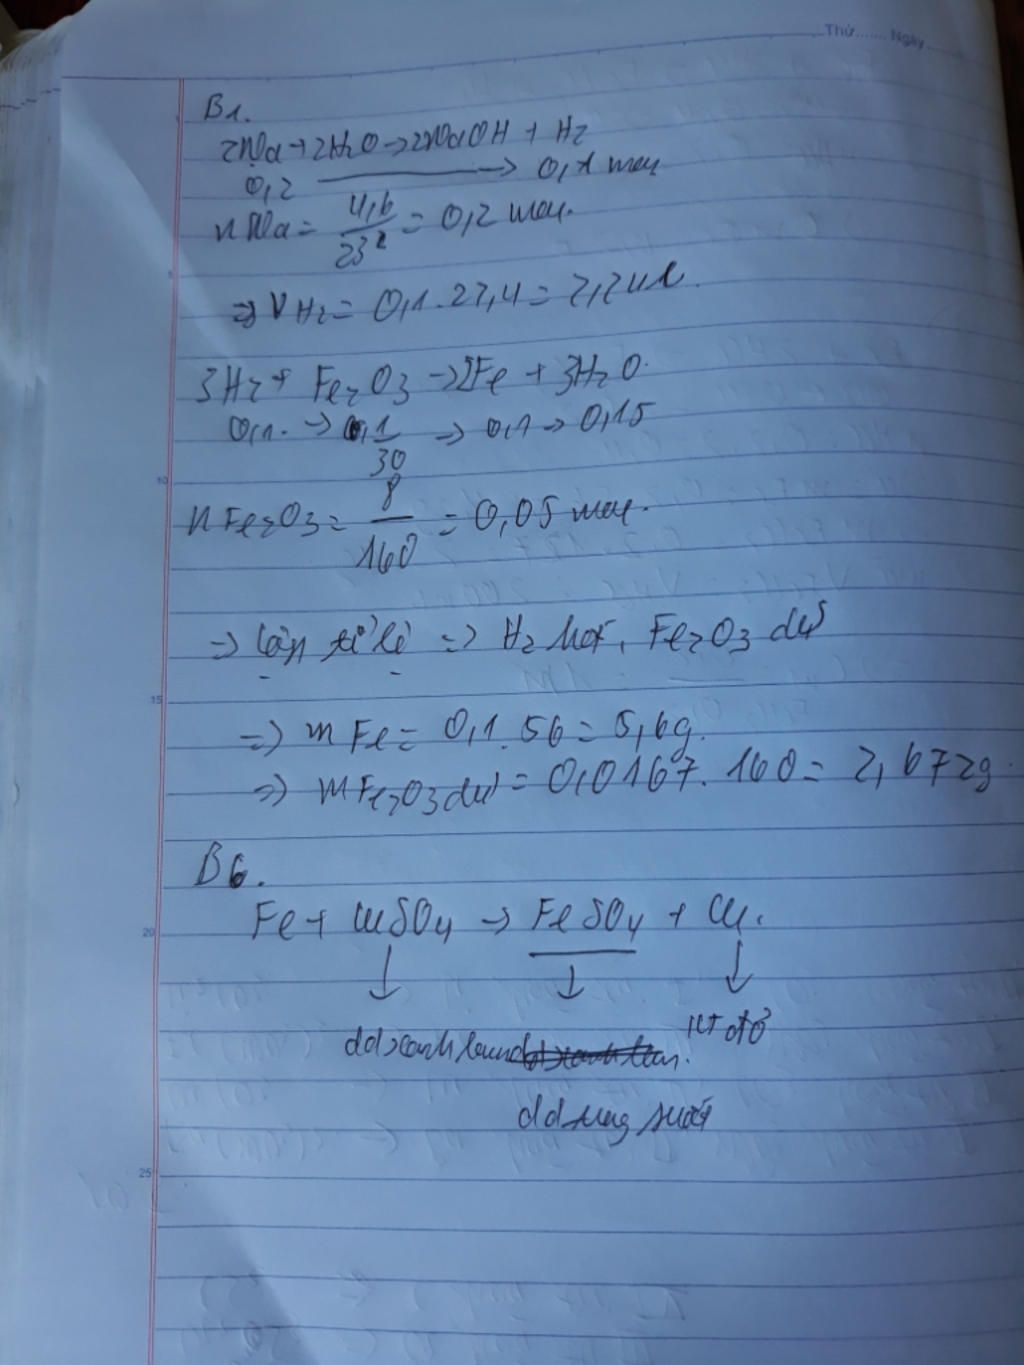 Thứ...... Ngày......
B1.
2Na + 2H2O → 2NaOH + H2
0,2 → 0,1 mol
nNa = 4,6/23 = 0,2 mol.
⇒ VH2 = 0,1.22,4 = 2,24l.
3H2 + Fe2O3 → 2Fe + 3H2O.
0,1. → 1/30 ⇒ 0,1 → 0,15
nFe2O3 = 8/160 = 0,05 mol.
⇒ Lập tỉ lệ ⇒ H2 hết, Fe2O3 dư
⇒ mFe = 0,1.56 = 5,6g.
⇒ mFe2O3 dư = 0,0167.160 = 2,672g
B6.
Fe + CuSO4 → FeSO4 + Cu.
↓ ↓ ↓
KT đỏ
dd xanh lam
dd suốt
5
10
15
20
25